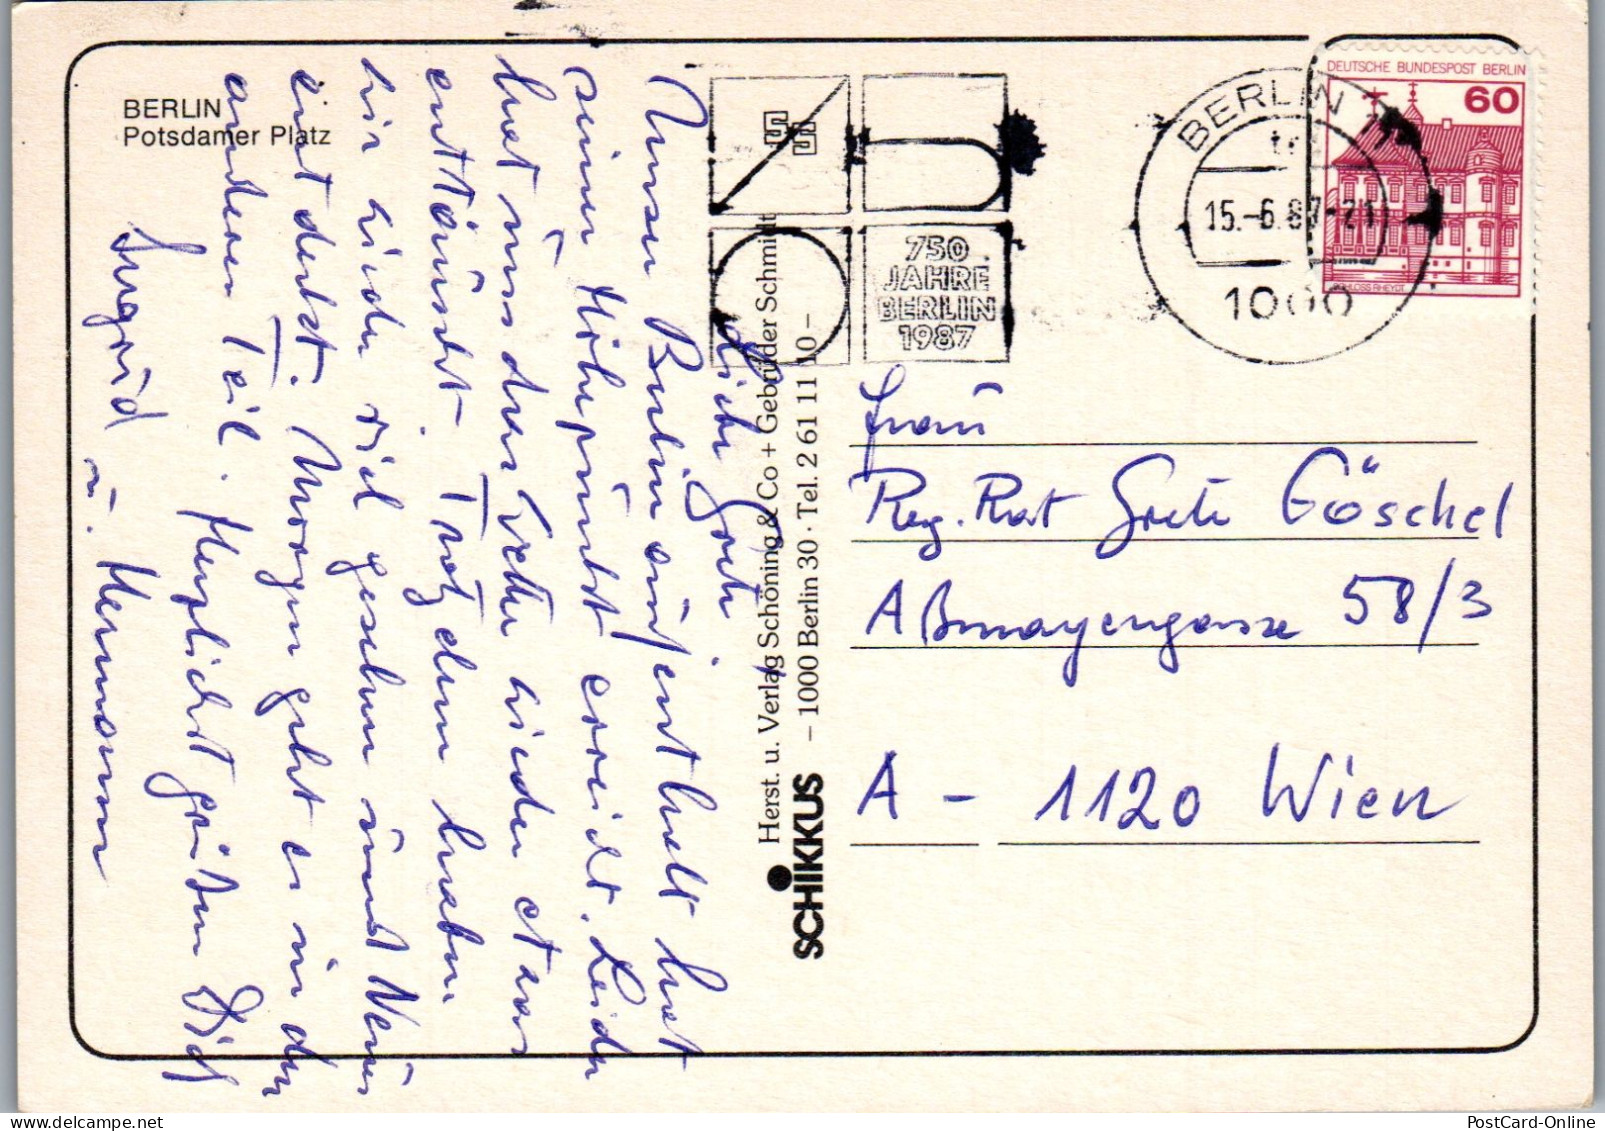 BERLIN
Potsdamer Platz
Liebe Grete,
Unser Berlinaufenthalt hat
seinen Höhepunkt erreicht. Leider
hat uns das Wetter wieder etwas
enttäuscht. Trotzdem haben
wir wieder viel gesehen und Neues
entdeckt. Morgen geht es in den
anderen Teil. Herzlichst grüßen Dich
Ingrid
u. Hermann
Herst. u. Verlag Schöning & Co + Gebrüder Schmidt
SCHIKKUS – 1000 Berlin 30 · Tel. 2 61 11 10 –
750
JAHRE
BERLIN
1987
BERLIN
15.-6.87-21
1000
DEUTSCHE BUNDESPOST BERLIN
60
SCHLOSS RHEYDT
Frau
Reg. Rat Grete Göschel
Aßmayergasse 58/3
A - 1120 Wien
PostCard.com-Online